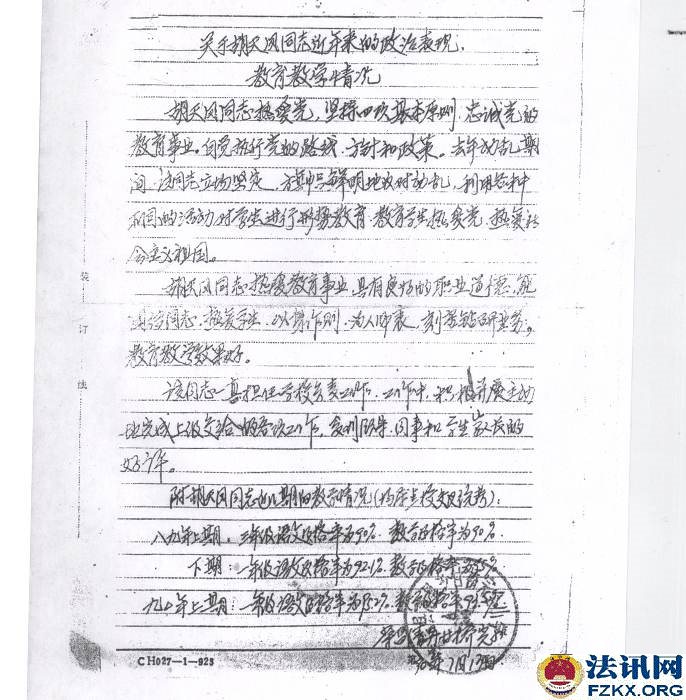 关于胡天风同志近年来的政治表现,
教育教学情况
胡天风同志热爱党,坚持四项基本原则,忠诚党的
教育事业。自觉执行党的路线、方针和政策。去年动乱期
间,该同志立场坚定,旗帜鲜明地反对动乱,利用各种
不同的活动对学生进行形势教育,教育学生热爱党,热爱社
会主义祖国。
胡天风同志热爱教育事业,具有良好的职业道德,能
团结同志,热爱学生,以身作则,为人师表,刻苦钻研业务,
教育教学效果好。
该同志一直担任学校负责工作,工作中,积极并主动
地完成上级交给的各项工作,受到领导、同事和学生家长的
好评。
附胡天风同志近几期的教学情况
八九年上期:三年级语文及格率为90%,数学及格率为90%
下期:一年级语文及格率为92.1%,数学及格率为
九〇年上期:一年级语文及格率为 数学及格率
九〇年7月13日
装
订
线
CH027-1-923
法讯网
FZKX.ORG